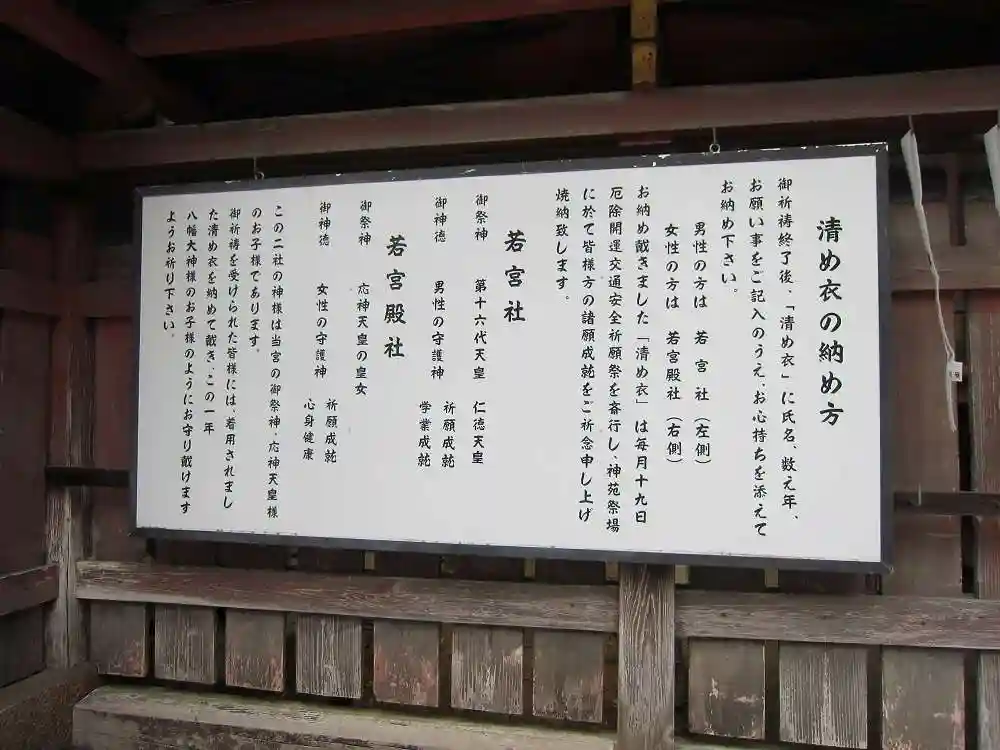 清め衣の納め方
御祈祷終了後、「清め衣」に氏名、数え年、
お願い事をご記入のうえ、お心持ちを添えて
お納め下さい。
男性の方は 若宮社（左側）
女性の方は 若宮殿社（右側）
お納め戴きました「清め衣」は毎月十九日
厄除開運交通安全祈願祭を斎行し、神苑祭場
に於て皆様方の諸願成就をご祈念申し上げ
焼納致します。
若宮社
御祭神 第十六代天皇 仁徳天皇
御神徳 男性の守護神 祈願成就
学業成就
若宮殿社
御祭神 応神天皇の皇女
御神徳 女性の守護神 祈願成就
心身健康
この二社の神様は当宮の御祭神、応神天皇様
のお子様であります。
御祈祷を受けられた皆様には、着用されまし
た清め衣を納めて戴き、この一年
八幡大神様のお子様のようにお守り戴けます
ようお祈り下さい。